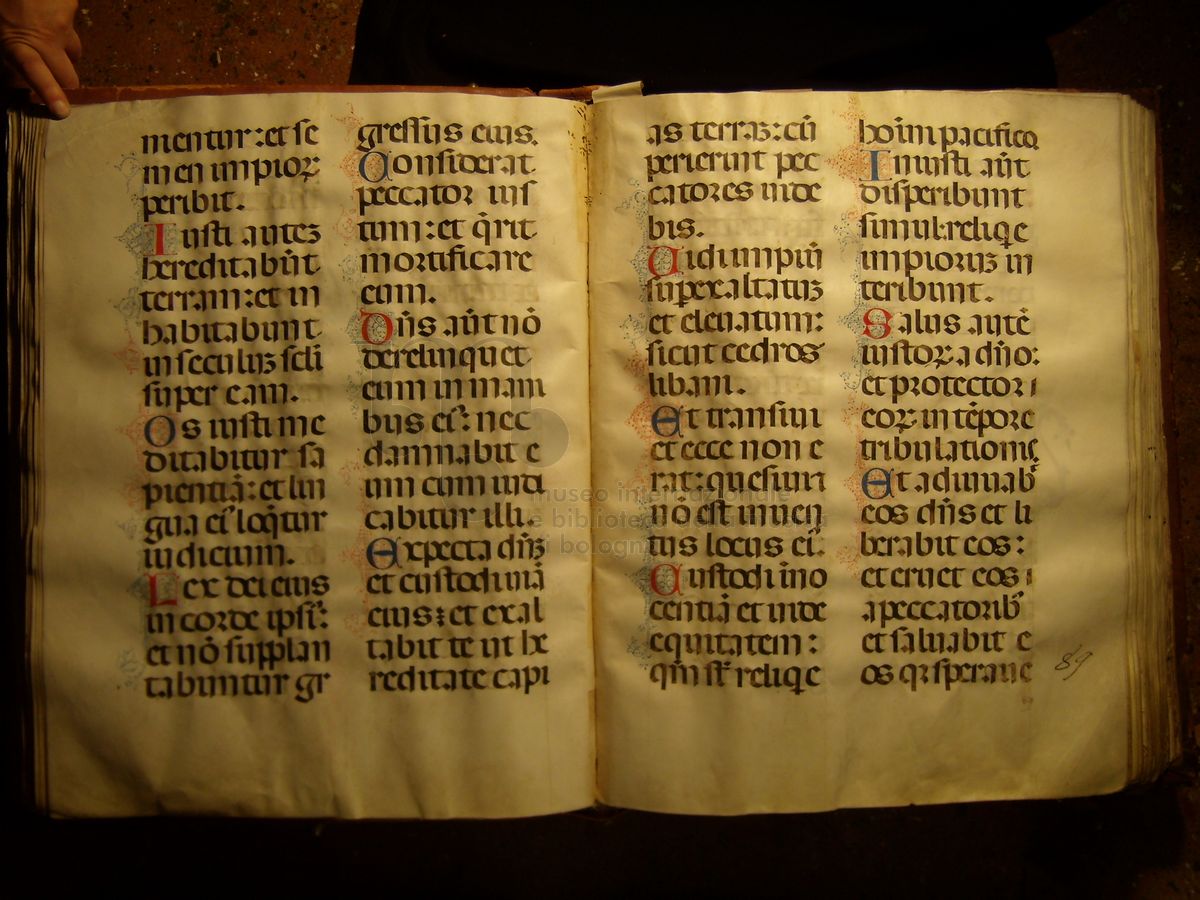 mentur: et se
men impioꝝ
peribit.
Iusti autez
hereditabūt
terram: et in
habitabunt
in seculuz scl̄i
super eam.
Os iusti me
ditabitur sa
pientiā: et lin
gua eiꝰ loq̄tur
iudicium.
Lex dei eius
in corde ipsiꝰ:
et nō supplan
tabuntur gr
gressus eius.
Considerat
peccator ius
tum: et q̄rit
mortificare
eum.
Dn̄s aūt nō
derelinquet
eum in mani
bus eiꝰ: nec
damnabit e
um cum iudi
cabitur illi.
Expecta dn̄z
et custodi uiā
eius: et exal
tabit te ut he
reditate capi
as terraz: cū
perierint pec
catores uide
bis.
Uidi impiū
superexaltatuz
et eleuatum:
sicut cedros
libani.
Et transiui
et ecce non e
rat: quesiui
nō est inuen
tus locus eiꝰ.
Custodi ino
centiā et uide
equitatem:
qm̄ sūt reliqe
hoīm pacifico
Iniusti aūt
disperibunt
simul: reliqe
impioruz in
teribunt.
Salus autē
iustoꝝ a dn̄o:
et protector
eoꝝ in tēpore
tribulationis
Et adiuuab
eos dn̄s et li
berabit eos:
et eruet eos
a peccatorib
et saluabit e
os qꝛ speraue
89
museo internazionale
e biblioteca della musica
di bologna